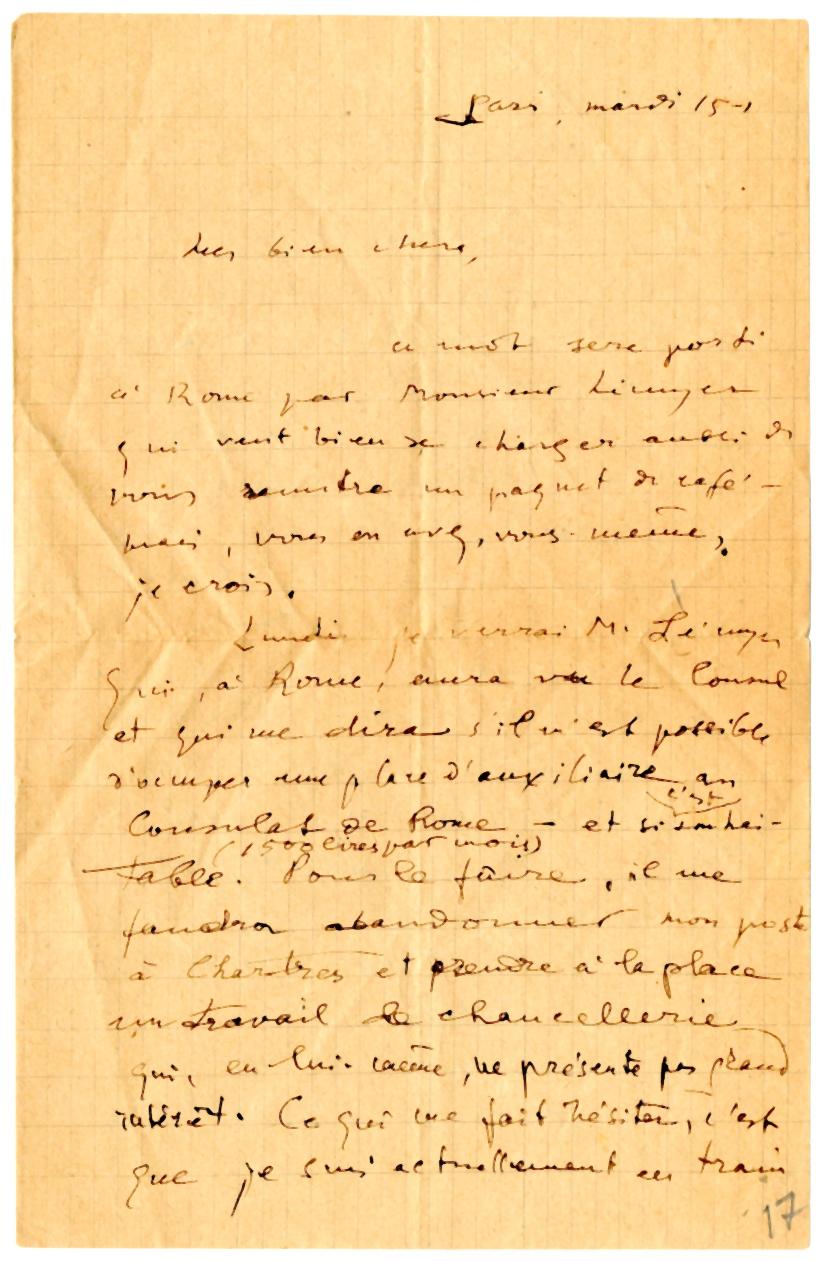 Paris, mardi 15-1
Mes bien chers,
ce mot sera porté
à Rome par Monsieur
qui veut bien se charger aussi de
vous remettre un paquet de café -
mais, vous en avez, vous-même,
je crois.
Lundi je verrai M.
qui, à Rome, aura vu le Consul
et qui me dira s'il m'est possible
d'occuper une place d'auxiliaire au
c'est
Consulat de Rome - et si souhai-
(1500 lires par mois)
table. Pour le faire, il me
faudra abandonner mon poste
à Chartres et prendre à la place
un travail de chancellerie
qui, en lui-même, ne présente pas grand
intérêt. Ce qui me fait hésiter, c'est
que je suis actuellement en train
17